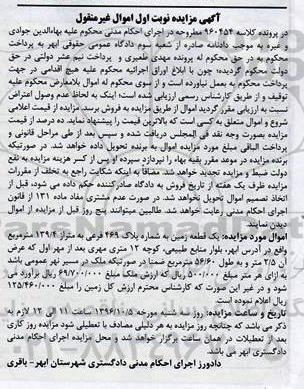 آگهی مزایده نوبت اول اموال غیرمنقول
در پرونده کلاسه ۹۶۰۴۵۴ مطروحه در اجرای احکام مدنی محکوم علیه بهاءالدین جوادی
و غیره به موجب دادنامه صادره از شعبه سوم دادگاه عمومی حقوقی ابهر به پرداخت
محکوم به در حق محکوم له پرونده مهدی طعیری و پرداخت نیم عشر دولتی در حق
محکوم گردیده؛ چون با ابلاغ اوراق اجرائیه محکوم علیه هیچ اقدامی در جهت
پرداخت محکوم به بعمل نیاورده است و از سوی محکوم له اموال بلامعارض محکوم علیه
توقیف و از طریق کارشناس رسمی ارزیابی شده است؛ اینک به لحاظ عدم وصول اعتراض
نسبت به ارزیابی مقرر گردید اموال از طریق مزایده به فروش برسد. مزایده از قیمت اعلامی
شروع و اموال متعلق به کسی است که بالاترین قیمت را پیشنهاد نماید. ده درصد از قیمت
مزایده بصورت وجه نقد فی المجلس دریافت شده و سپس بعد از طی مراحل قانونی و
پرداخت الباقی مبلغ مورد مزایده اموال به برنده تحویل داده خواهد شد. در صورتیکه
برنده مزایده در موعد مقرر بقیه بهاء را نپردازد سپرده او پس از کسر هزینه مزایده به نفع
دولت ضبط و مزایده تجدید خواهد شد. مضافا به اینکه شکایت راجع به تخلف از مقررات
مزایده ظرف یک هفته از تاریخ فروش به دادگاه صادرکننده حکم داده می شود، قبل از
اتخاذ تصمیم اموال تحویل نخواهد شد. در صورت عدم مشتری مفاد ماده ۱۳۱ از قانون
اجرای احکام مدنی رعایت خواهد شد. طالبین میتوانند پنج روز قبل از مزایده از اموال
دیدن نمایند.
اموال مورد مزایده: یک قطعه زمین به شماره پلاک ۴۶۹ فرعی به متراژ ۱۳۹/۴ مترمربع
واقع در آدرس ابهر، بلوار منابع طبیعی، کوچه ۱۲ متری مهری بعد از مهر اول که عرض
آن ۲/۵ متر و به طول ۵۶/۶۰ متر مربع ضمنا در صورتیکه ملک در مسیر نهر عمومی باشد
به ازای هر متر مبلغ ۵۰۰/۰۰۰ ریال که ارزش ملک مبلغ ۶۹/۷۰۰/۰۰۰ ریال برآورد می
شود و در غیر این صورت که کارشناس محترم ارزش کل زمین را مبلغ ۱۲۵/۴۶۰/۰۰۰
ریال اعلام نموده است.
تاریخ و ساعت مزایده: روز سه شنبه مورخه ۱۳۹۶/۱۰/۵ ساعت ۱۱ الی ۱۲ لازم به
ذکر می باشد که چنانچه روز مزایده به هر دلیلی مصادف با تعطیلی شود مزایده روز کاری
بعد از تعطیلات در همان ساعت برگزار خواهد شد و محل مزایده اجرای احکام مدنی
دادگستری ابهر می باشد.
دادورز اجرای احکام مدنی دادگستری شهرستان ابهر- باقری